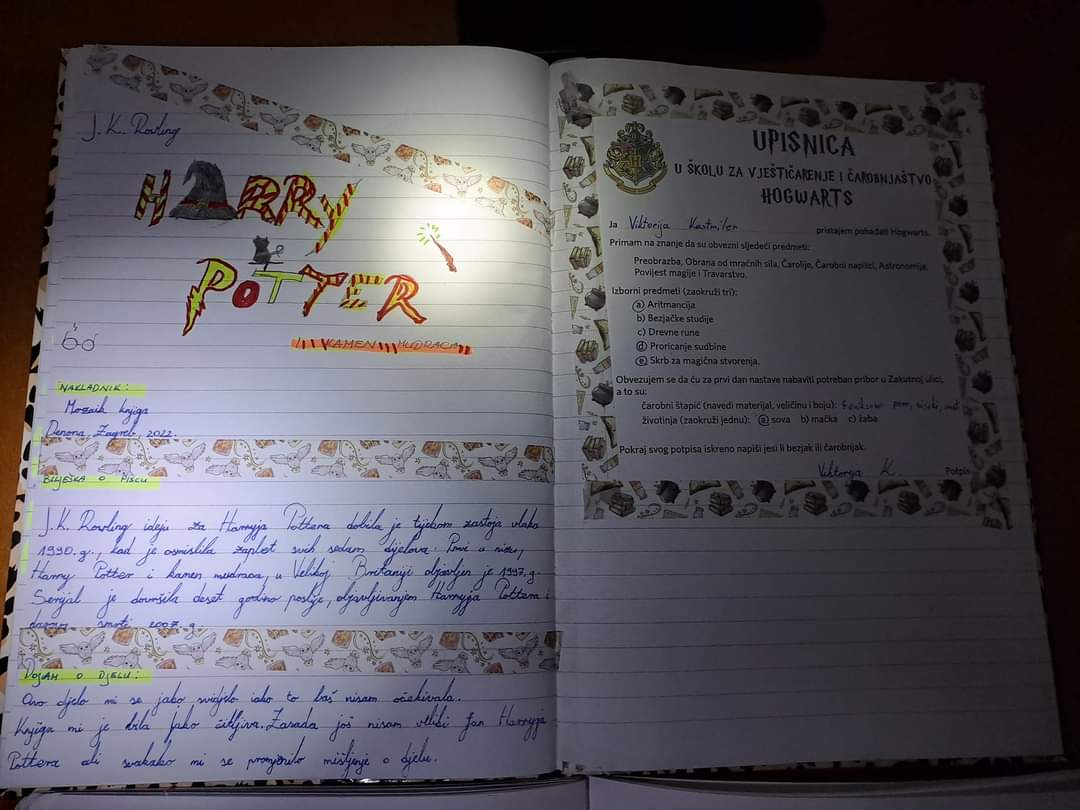 J. K. Rowling
HARRY
POTTER
I KAMEN MUDRACA
NAKLADNIK:
Mozaik knjiga
Denona, Zagreb, 2022.
BILJEŠKA O PISCU
J. K. Rowling ideju za Harryja Pottera dobila je tijekom zastoja vlaka
1990. g., kad je osmislila zaplet svih sedam djelova. Prvi u nizu,
Harry Potter i kamen mudraca, u Velikoj Britaniji objavljen je 1997. g.
Serijal je dovršila deset godina poslije, objavljivanjem Harryja Pottera i
darova smrti 2007. g.
DOJAM O DJELU:
Ovo djelo mi se jako svidjelo iako to baš nisam očekivala.
Knjiga mi je bila jako čitljiva. Zasada još nisam veliki fan Harryja
Pottera ali svakako mi se promjenilo mišljenje o djelu.
UPISNICA
U ŠKOLU ZA VJEŠTIČARENJE I ČAROBNJAŠTVO
HOGWARTS
Ja Viktorija Kastmiler pristajem pohađati Hogwarts.
Primam na znanje da su obvezni sljedeći predmeti:
Preobrazba, Obrana od mračnih sila, Čarolije, Čarobni napitci, Astronomija,
Povijest magije i Travarstvo.
Izborni predmeti (zaokruži tri):
a) Aritmancija
b) Bezjačke studije
c) Drevne rune
d) Proricanje sudbine
e) Skrb za magična stvorenja.
Obvezujem se da ću za prvi dan nastave nabaviti potreban pribor u Zakutnoj ulici,
a to su:
čarobni štapić (navedi materijal, veličinu i boju):
životinja (zaokruži jednu): a) sova b) mačka c) žaba
Pokraj svog potpisa iskreno napiši jesi li bezjak ili čarobnjak.
Viktorija K. Potpis